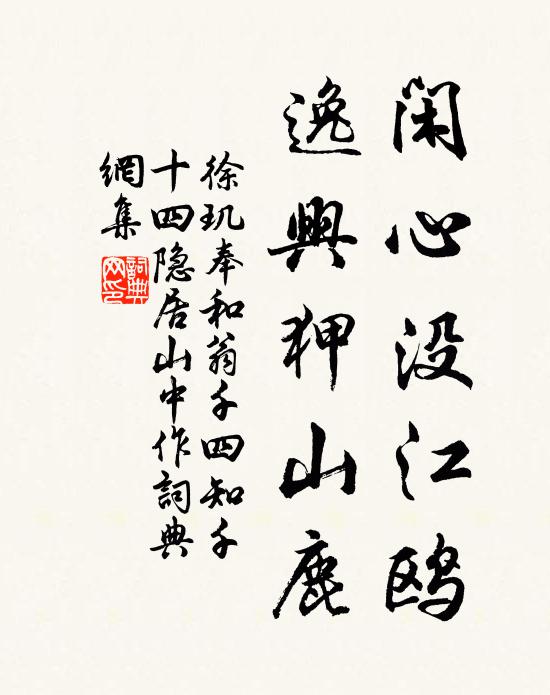 闲心没江鸥
逸興狎山鹿
徐玑奉和翁千四知千
十四隐居山中作詞典
網集
詞典網印